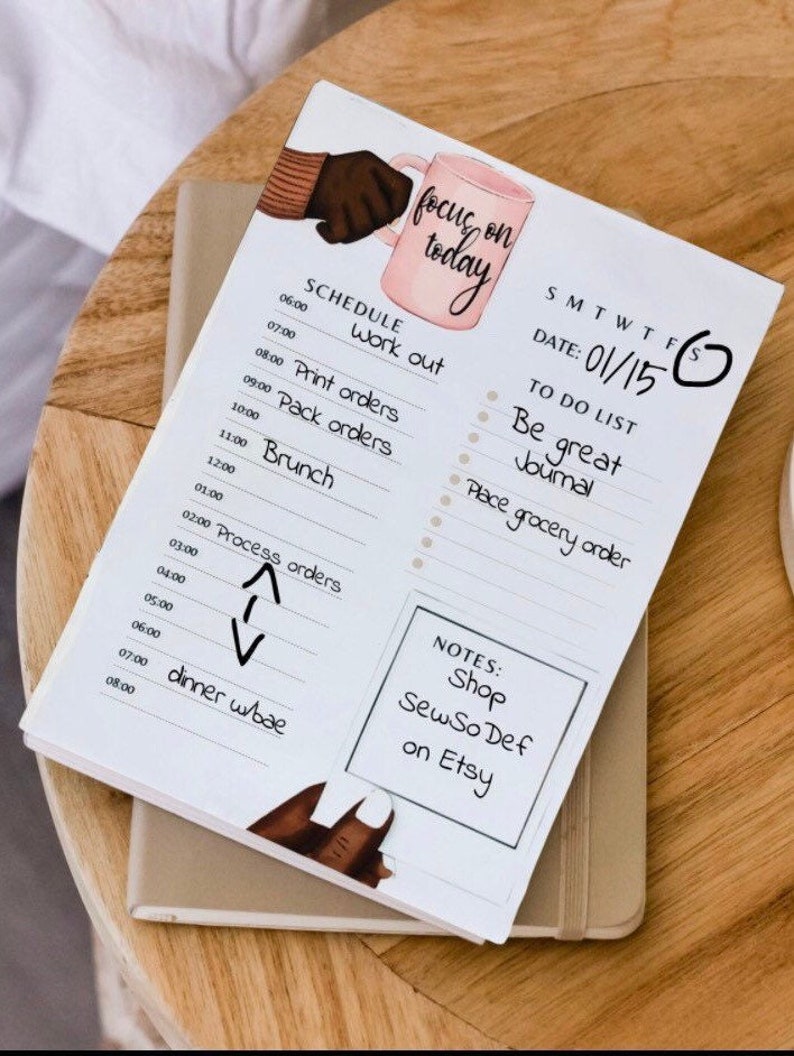 focus on
today
SCHEDULE
06:00
07:00 Work out
08:00
09:00 Print orders
10:00 Pack orders
11:00
12:00 Brunch
01:00
02:00
03:00 Process orders
04:00
05:00
06:00
07:00
08:00 dinner w/bae
S M T W T F S
DATE: 01/15
TO DO LIST
Be great
Journal
Place grocery order
NOTES:
Shop
SewSoDef
on Etsy